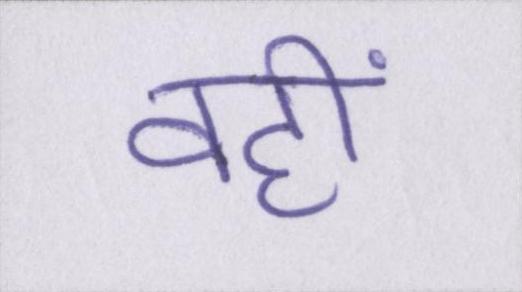 वहीं